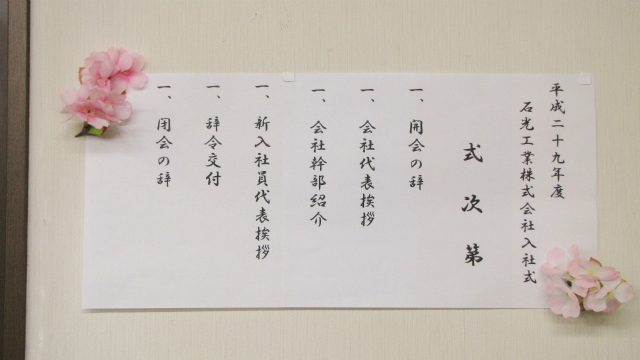 平成二十九年度
石光工業株式会社入社式
式次第
一、開会の辞
一、会社代表挨拶
一、会社幹部紹介
一、新入社員代表挨拶
一、辞令交付
一、閉会の辞